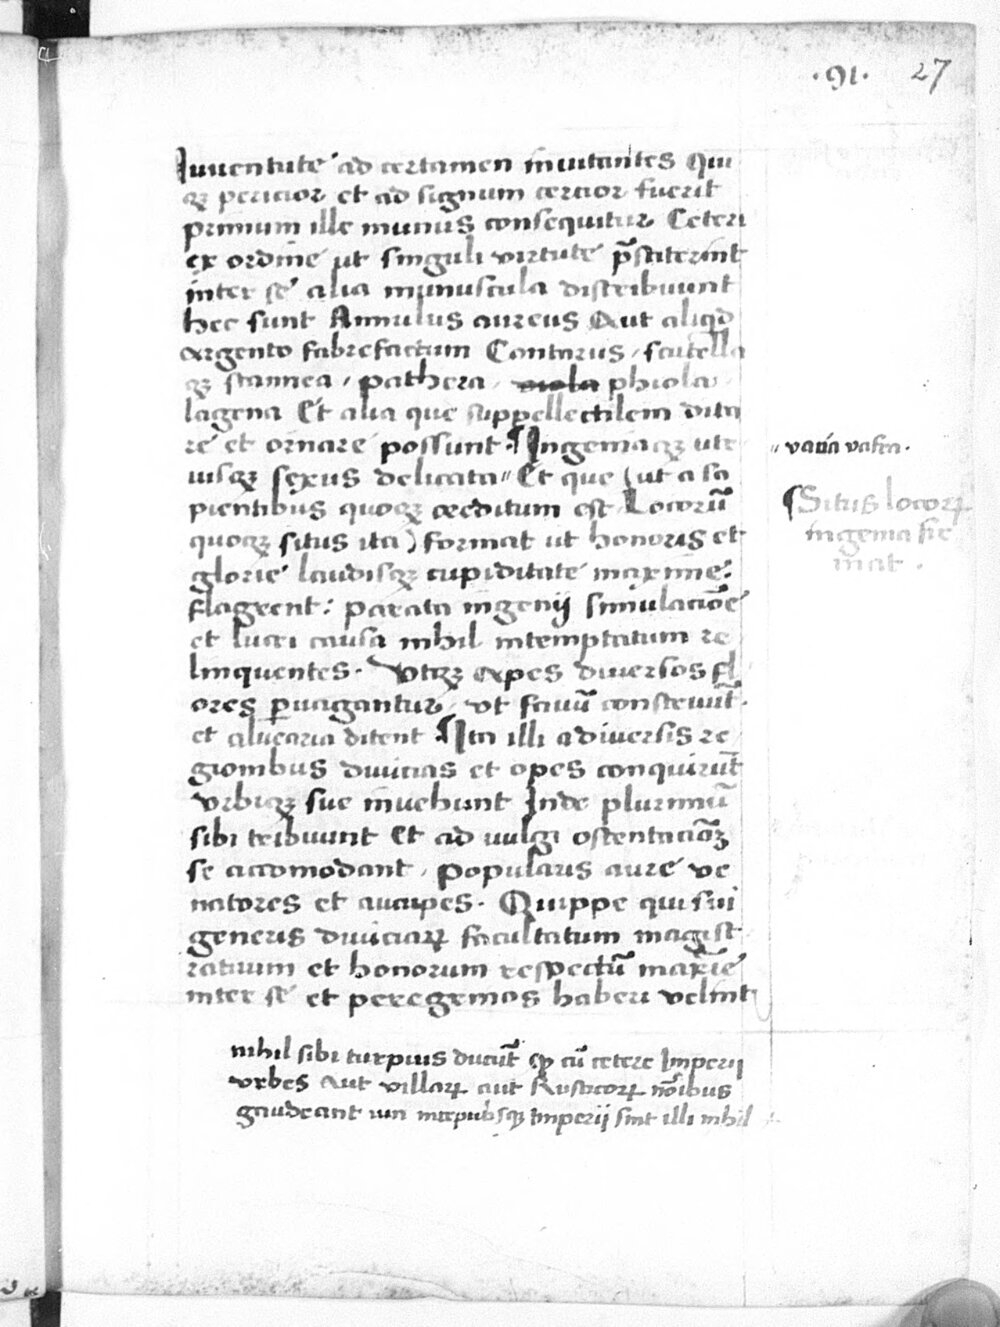 ·91· 27
Iuuentute ad certamen inuitantes Qui
qꝫ pericior et ad signum cercior fuerit
primum ille munus consequitur Ceteri
ex ordine ut singuli virtute p̄stiterint
inter se alia munuscula distribuunt
hec sunt Annulus aureus Aut aliqd
argento fabrefactum Contarus / scutella
qꝫ stannea / pathera / phiola /
lagena Et alia que suppellectilem dita
re et ornare possunt · ¶ Ingeniaqꝫ utr
iusqꝫ sexus delicata // Et que ( ut a sa
pientibus quoqꝫ creditum est / Locorū
quoqꝫ situs ita ) format ut honoris et
glorie laudisqꝫ cupiditate maxime :
flagrent : parata ingenij simulaciōe
et lucri causa nihil intemptatum re
linquentes · Vtqꝫ apes diuersos fl
ores ꝑuagantur / vt fauū construūt ·
et aluearia ditent ¶ Ita illi a diuersis re
gionibus diuicias et opes conquirūt
vrbiqꝫ sue inuehunt Inde plurimū
sibi tribuunt Et ad uulgi ostentacioꝫ
se accomodant / popularis aure ve
natores et aucupes · Quippe qui sui
generis diuiciaꝝ facultatum magist
ratuum et honorum respectū maxīe
inter se et peregrinos haberi velint
nihil sibi turpius ducūt qꝫ cū cetere Imperij
vrbes aut villaꝝ aut Rusticoꝝ nōibus
gaudeant Imperij sint illi nihil
// varia vasa ·
¶ Situs locoꝝ
ingenia for
mat ·